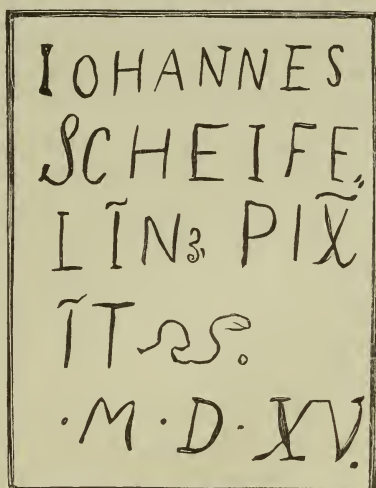 IOHANNES
SCHEIFE„
LĪNꝫ PIX̃
ĪT
·M·D·XV.